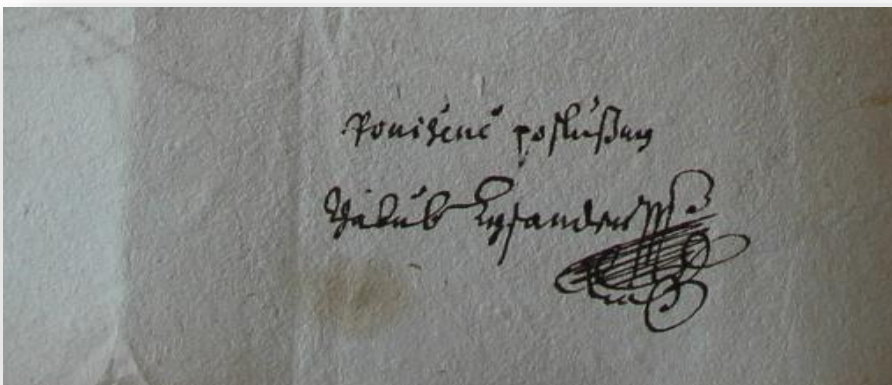 Poníženě poslušný
Jakub Lysander